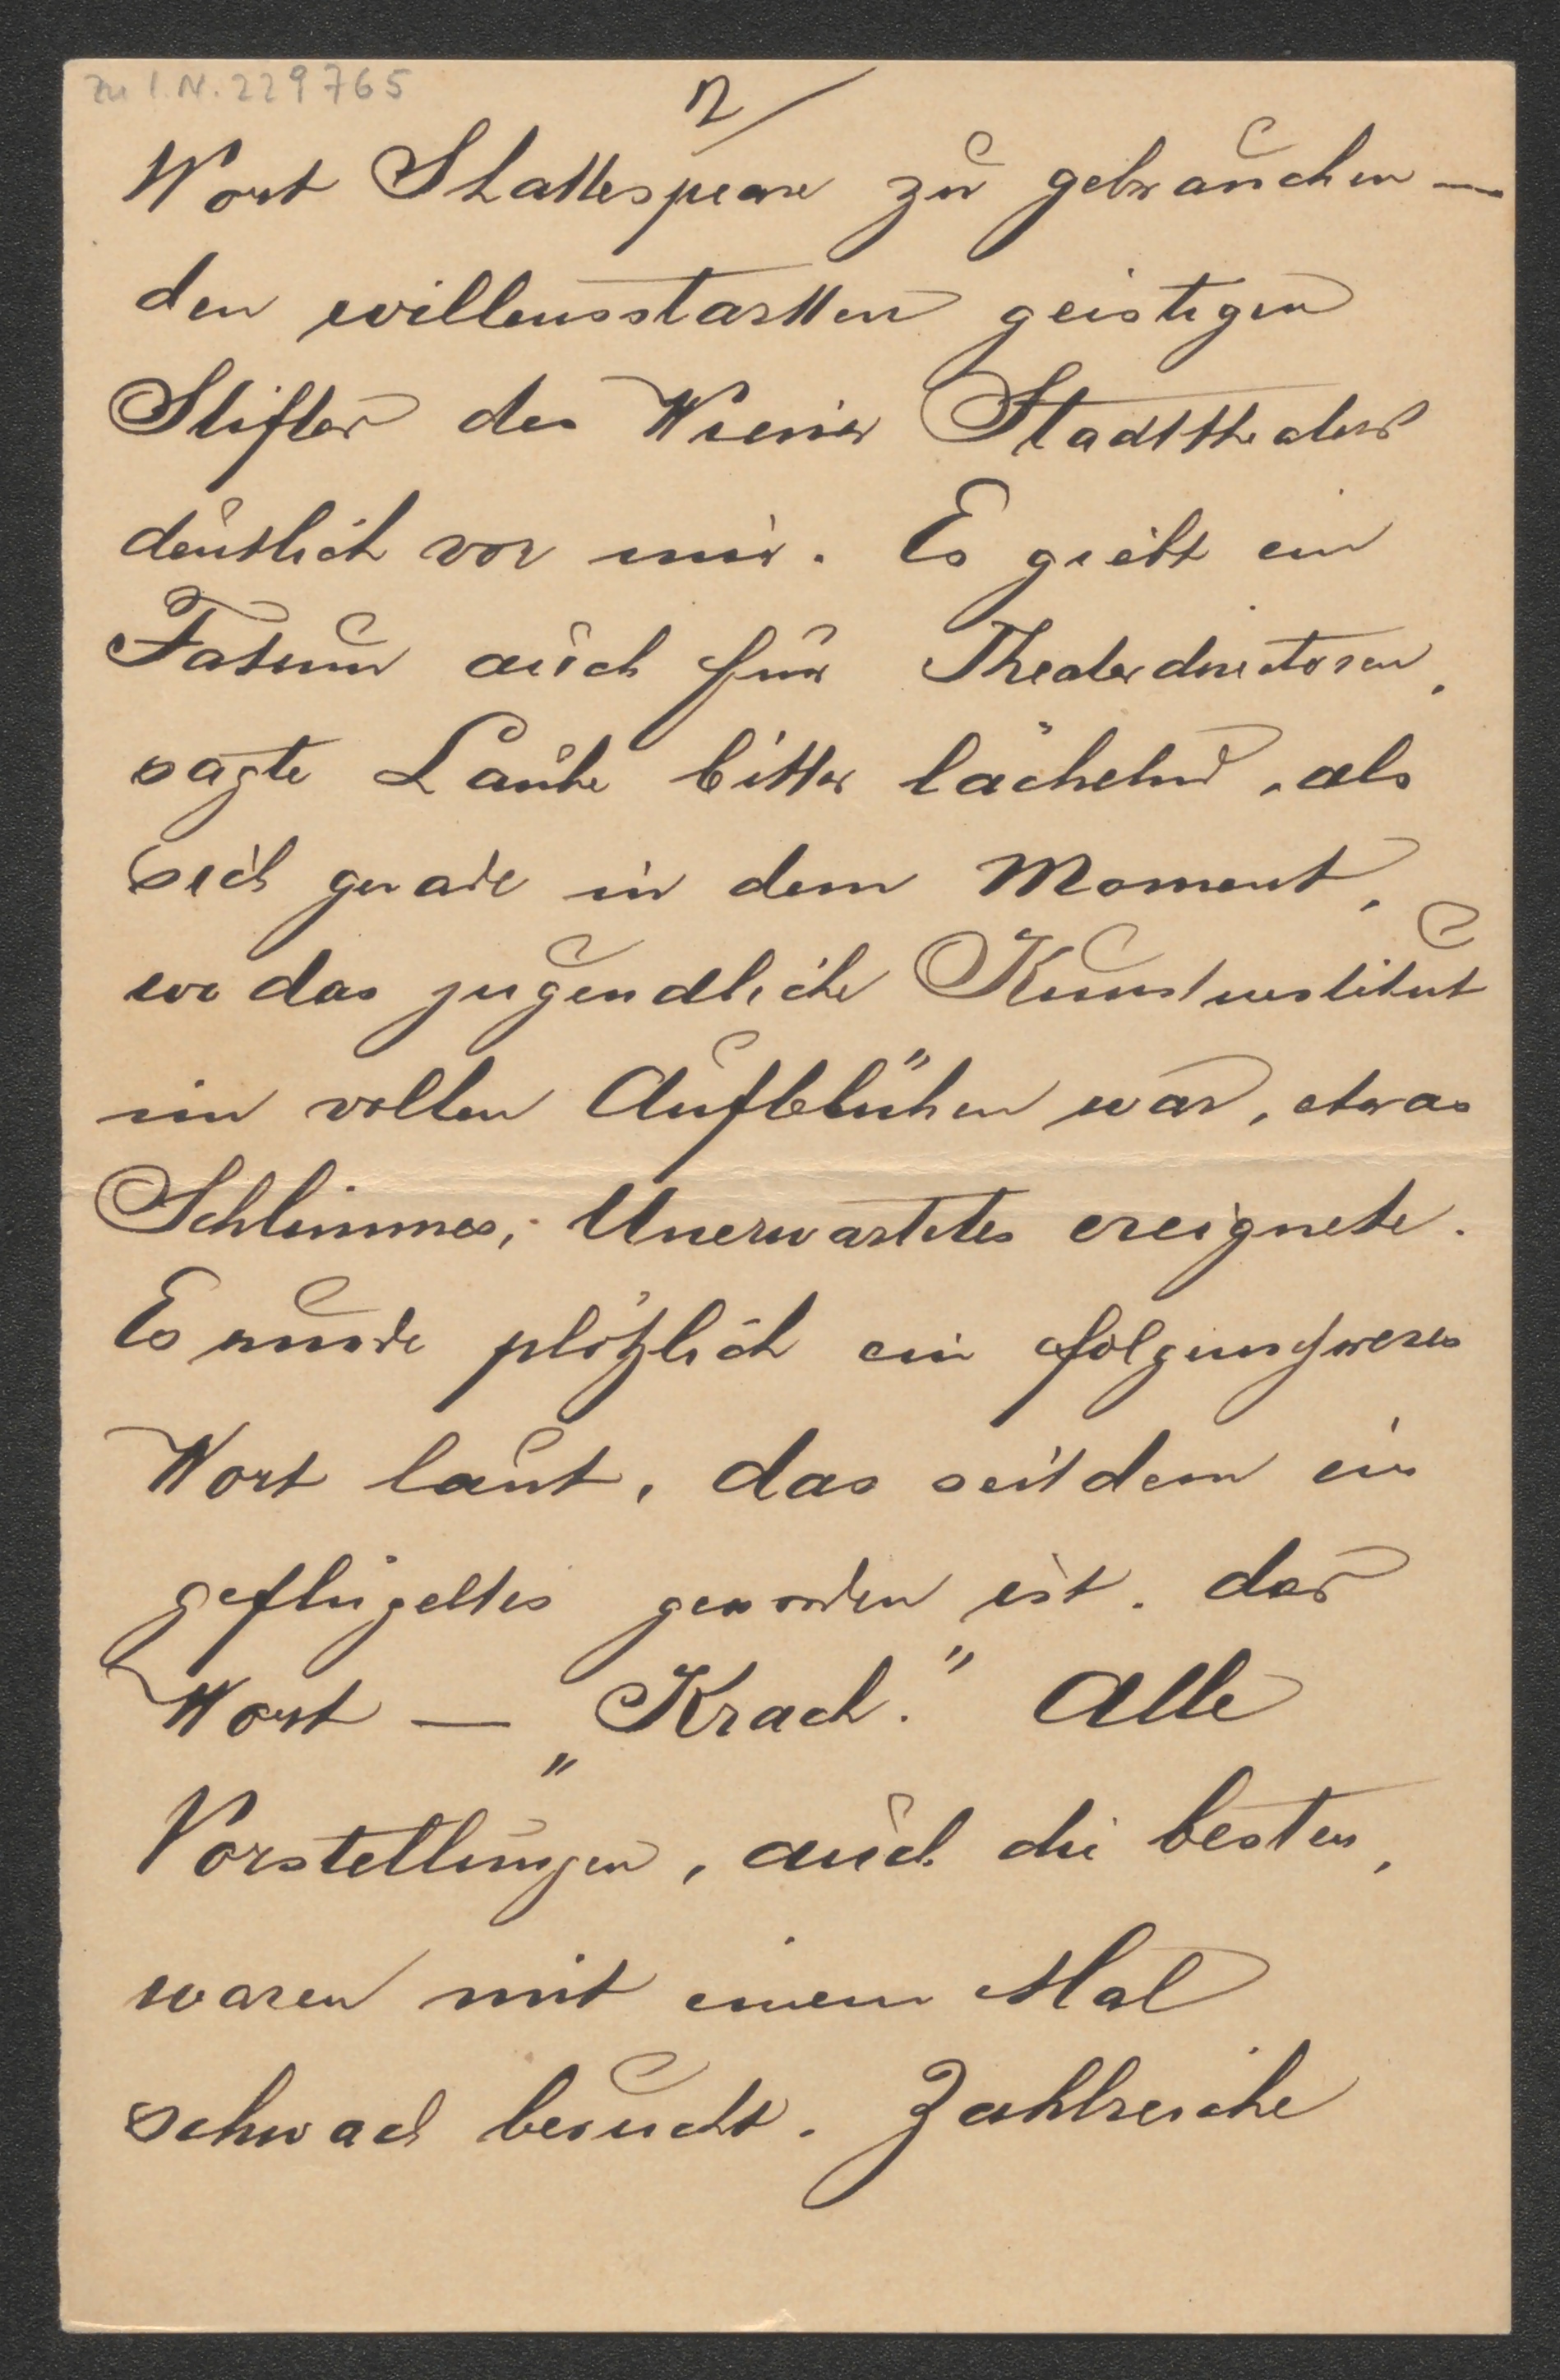 zu I.N. 229765
2/
Wort Shakespeare zu gebrauchen —
den willensstarken geistigen
Stifter des Wiener Stadttheaters
deutlich vor mir. Es giebt ein
Fatum auch für Theaterdirectoren,
sagte Laube bitter lächelnd, als
sich gerade in dem Moment,
wo das jugendliche Kunstinstitut
im vollen Aufblühen war, etwas
Schlimmes, Unerwartetes ereignete.
Es wurde plötzlich ein folgenschweres
Wort laut, das seitdem ein
geflügeltes geworden ist. das
Wort — „Krach." Alle
Vorstellungen, auch die besten,
waren mit einem Mal
schwach besucht. Zahlreiche